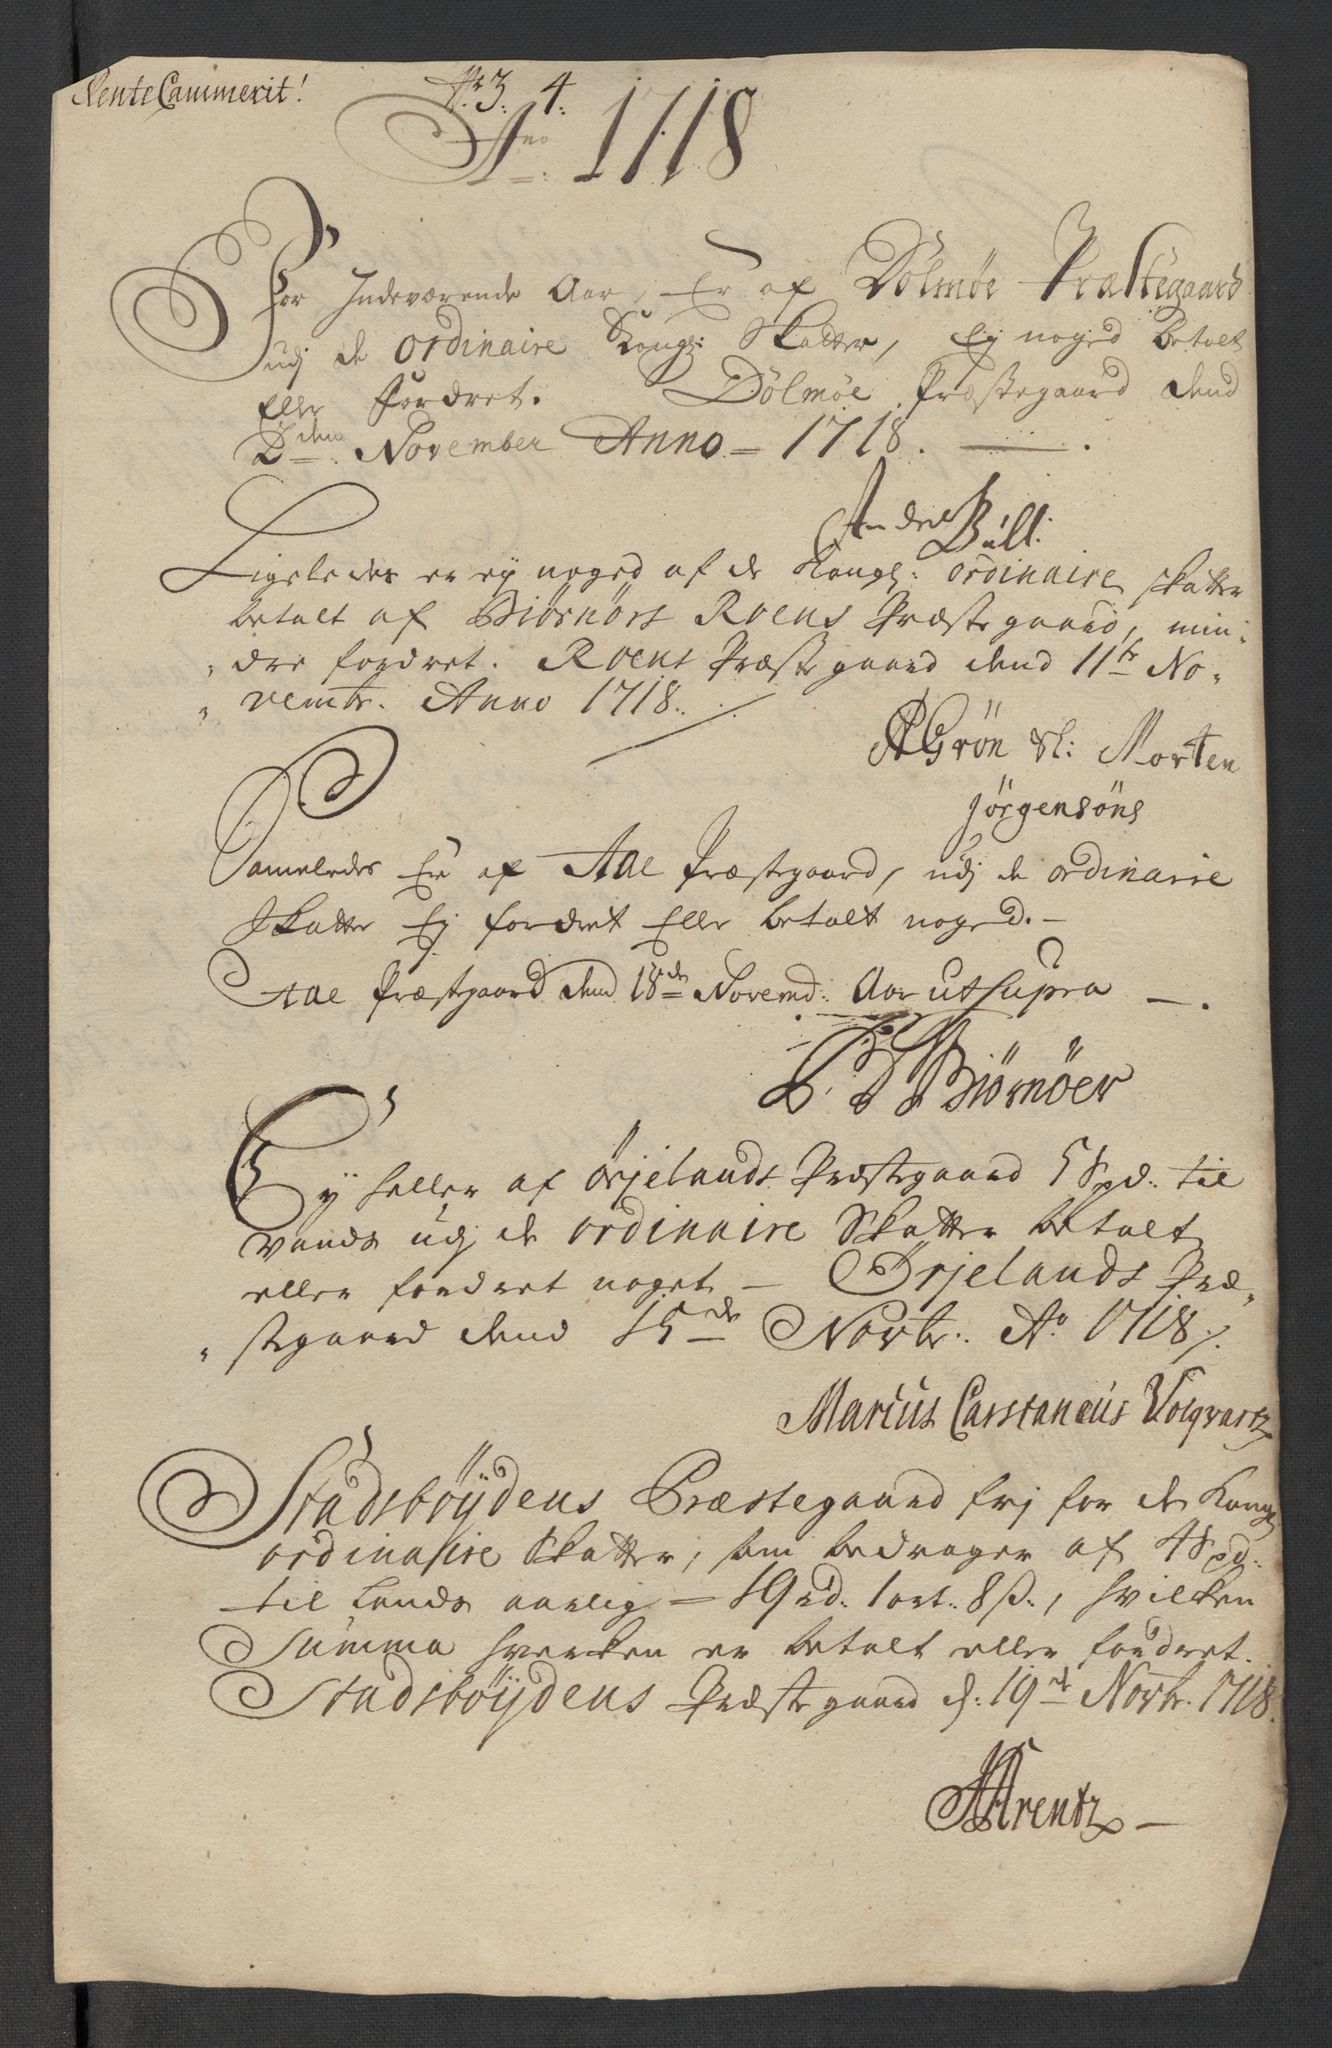 RenteCammerit!
Nr 3. 4.
Ano 1718
For Indeværende Aar, Er af Dölmöe Præstegaard
udj de ordinaire Kongl: Skatter, Ej noged betalt
Eller Fordret. Dölmöe Præstegaard dend
2den November Anno = 1718.
Anders Büll:
Ligeledes er ej noged af de Kongl: ordinaire skatter
betalt af Biörnörs Roens Præstegaard, min-
dre fordret. Roens Præstegaard dend 11te No-
vembr. Anno 1718.
AGrön Sl: Morten
Jörgensöns
Sameledes Er af Aae Præstegaard, udj de ordinarie
Skatter Ej fordret Eller betalt noged.
Aae Præstegaard dend 18de Novemb: Aar ut supra
Biörnöer
Ey heller af Örjelands Præstegaard 5 Spd. til
vands udj de ordinaire Skatter betalt
eller fordret noget - Örjelands Præ-
stegaard dend 15de Novbr. Ao 1718
Marcus Carstanius Volqvartz
Stadsböÿdens Præstegaard frj for de Kongl
ordinaire Skatter, som bedrager af 4 Spd.
til Lands aarlig = 19 rd. 1 ort. 8 ß., hvilken
Summa hverken er betalt eller fordret.
Stadsböÿdens Præstegaard d. 19de Novbr. 1718.
Arentz